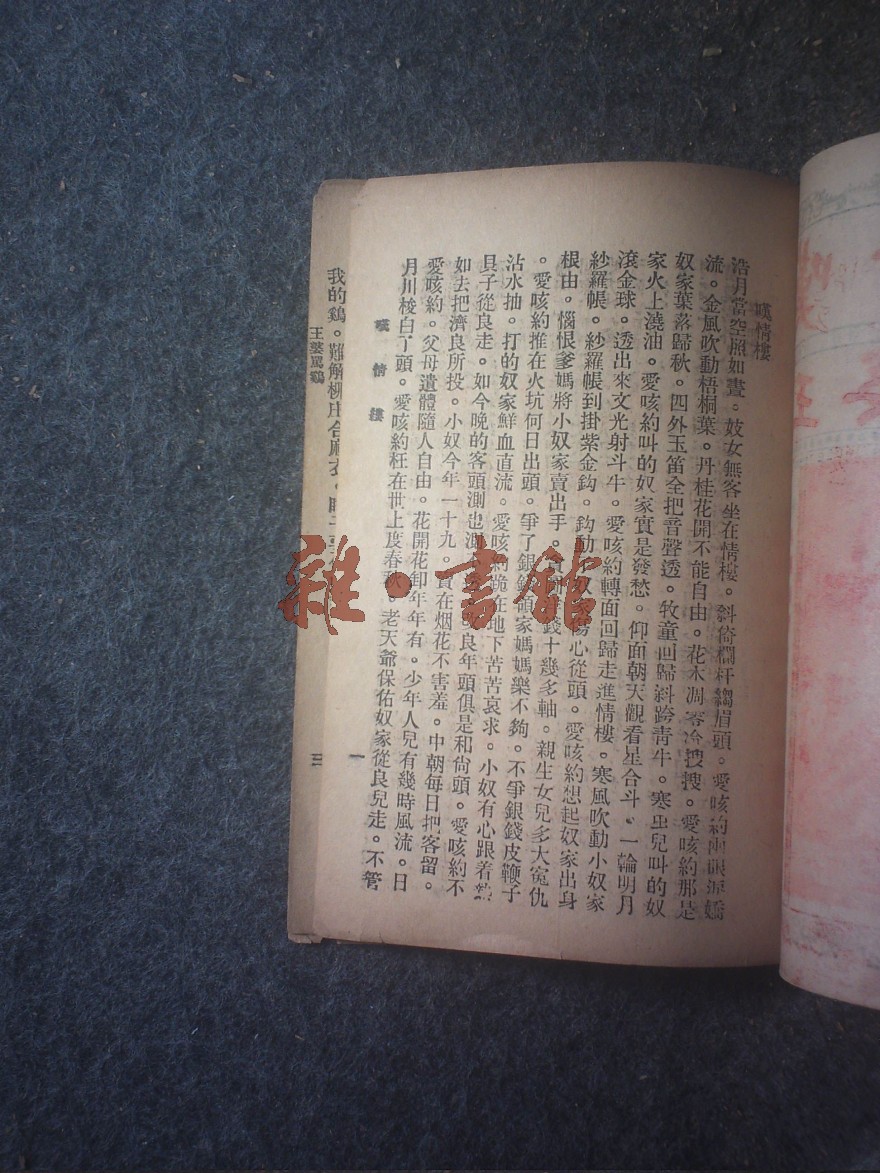 嘆情樓
浩月當空照如晝。妓女無客坐在情樓。斜倚欄杆縐眉頭。愛咳約兩眼淚嬌
流。金風吹動梧桐葉。丹桂花開不能自由。花木凋零冷搜搜。愛咳約那是
奴家葉落歸秋。四外玉笛全把音聲透。牧童回歸斜跨青牛。寒虫兒叫的奴
家火上澆油。愛咳約叫的奴家實是發愁。仰面朝天觀看星合斗。一輪明月
滾金球。透出來文光射斗牛。愛咳約轉面回歸走進情樓。寒風吹動小奴家
紗羅帳。紗羅帳到掛紫金鈎。鈎動 奴家傷心從頭。愛咳約想起奴家出身
根由。惱恨爹媽將小奴家賣出手。 錢十幾多軸。親生女兒多大冤仇
。愛咳約推在火坑何日出頭。爭了銀錢頭家媽媽樂不夠。不爭銀錢皮鞭子
沾水抽。打的奴家鮮血直流。愛咳約跪在地下苦苦哀求。小奴有心跟着
具子從良走。如今晚的客頭測也測 良年頭俱是和尙頭。愛咳約不
如去把濟良所投。小奴今年一十九。 在烟花不害羞。中朝每日把客留。
愛咳約。父母遺體隨人自由。花開花卸年年有。少年人兒有幾時風流。日
月川梭白了頭。愛咳約枉在世上度春秋。老天爺保佑奴家從良兒走。不管
嘆情樓
一
我的鷄。難解柳庄合麻衣。
王婆罵鷄
三
雜·書館